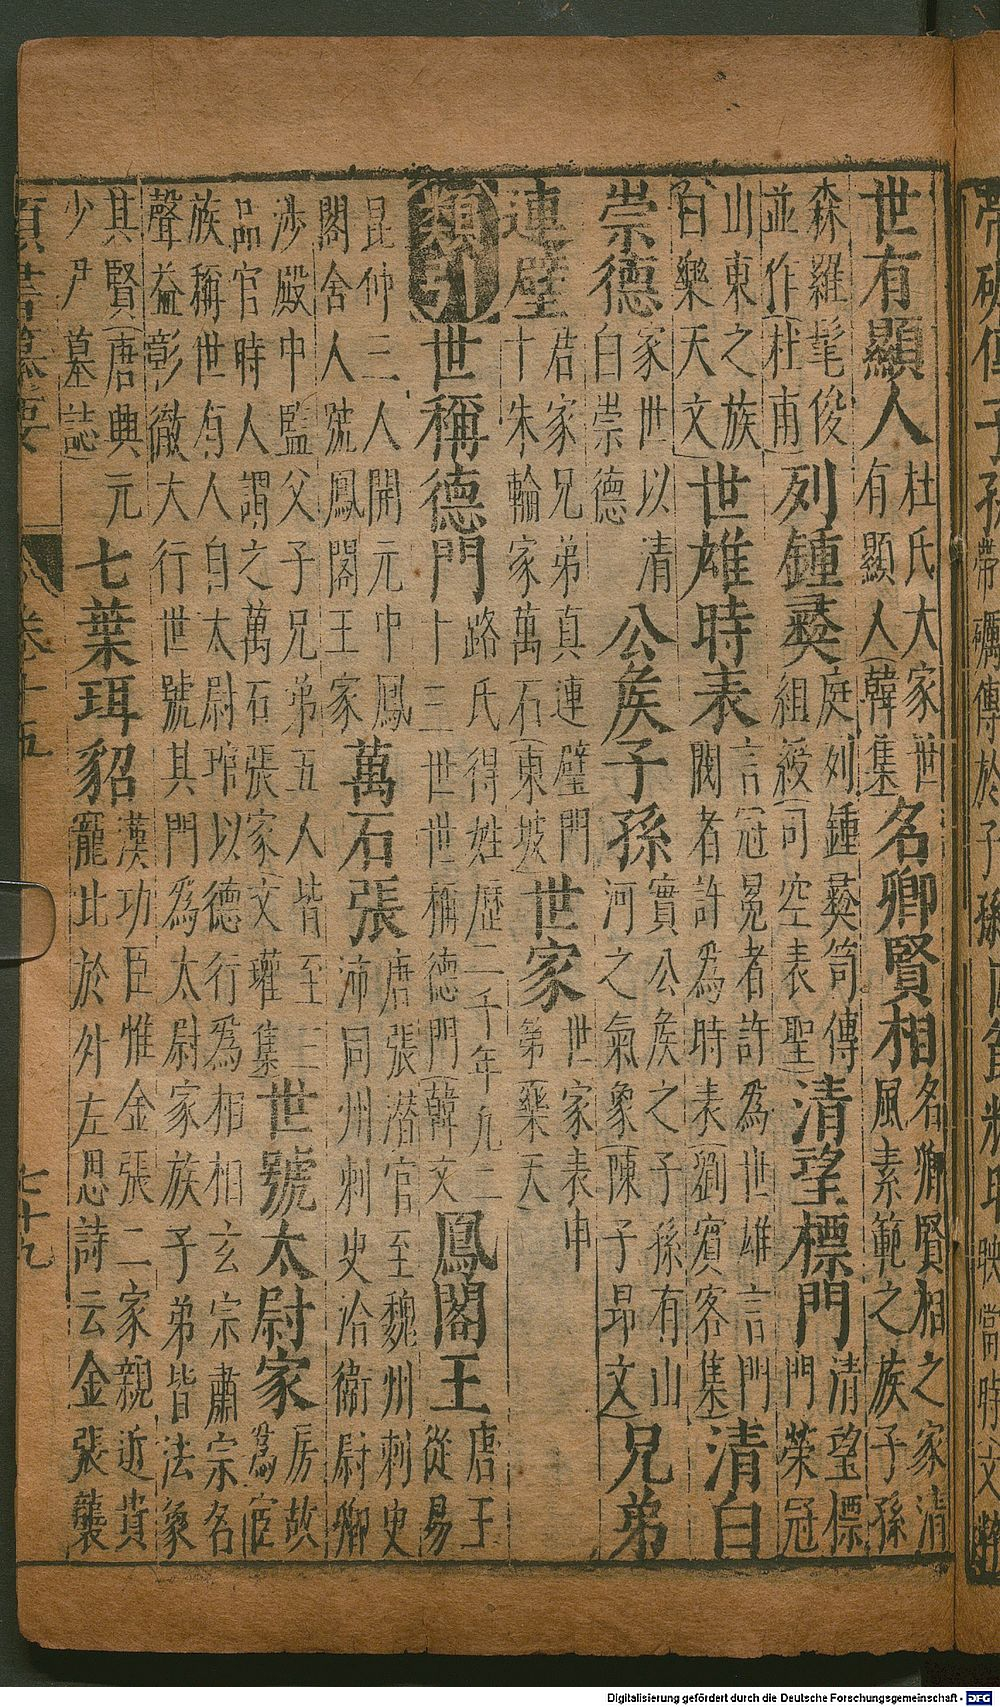 世有顯人 杜氏大家世有顯人(韓集 名卿賢相 名卿賢相之家清風素範之族子孫
森羅髦俊並作(杜甫) 列鍾彝 庭列鍾彝笥傳組綬(司空表聖) 清望標門 清望標門榮冠
山東之族(白樂天文) 世雄時表 言冠冕者許為世雄言門閥者許為時表(劉賓客集) 清白
崇德 家世以清白崇德 公侯子孫 實公侯之子孫有山河之氣象(陳子昂文) 兄弟
連璧 君家兄弟真連璧門十朱輪家萬石(東坡) 世家 世家表申第(樂天
類引 世稱德門 路氏得姓歷二千年九二十三世世稱德門(韓文 鳳閣王 唐王從易
昆仲三人開元中鳳閣舍人號鳳閣王家 萬石張 唐張潛官至魏州刺史沛同州刺史洽衛尉卿
涉殿中監父子兄弟五人皆至三品官時人謂之萬石張家(文瓘集) 世號太尉家 房故為宦
族稱世有人自太尉琯以德行為相相玄宗肅宗名聲益彰徹大行世號其門為太尉家族子弟皆法象
其賢(唐興元少尹墓誌) 七葉珥貂 漢功臣惟金張二家親近貴寵比於外左思詩云金張襲
類書纂要 卷十五 七十九
Digitalisierung gefördert durch die Deutsche Forschungsgemeinschaft - DFG